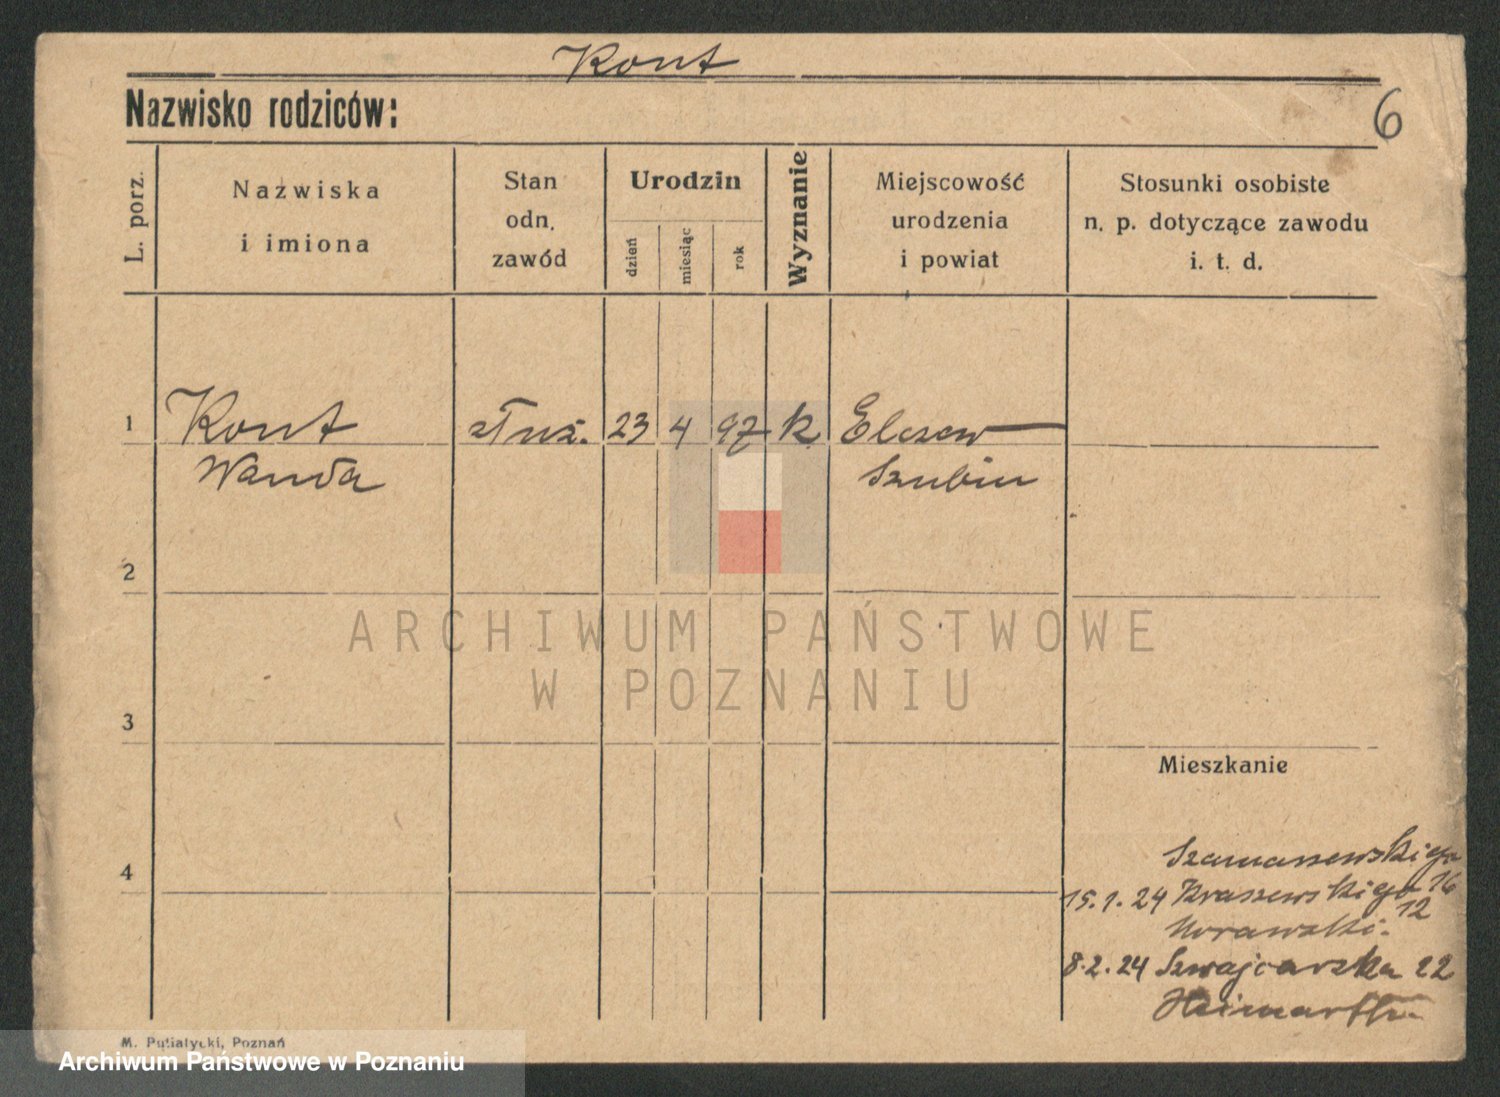 Kont
Nazwisko rodziców:
6
L. porz.
Nazwiska
i imiona
Stan
odn.
zawód
Urodzin
dzień
miesiąc
rok
Wyznanie
Miejscowość
urodzenia
i powiat
Stosunki osobiste
n. p. dotyczące zawodu
i. t. d.
1 Kont służ. 23 4 97 k. Elszew
Wanda Szubin
2
3
Mieszkanie
4
Szamarzewskiego
16
15.1.24 Kraszewskiego
12
Norawski.
8.2.24 Szwajcarska 22
M. Putiatycki, Poznań
ARCHIWUM PAŃSTWOWE
W POZNANIU
Archiwum Państwowe w Poznaniu